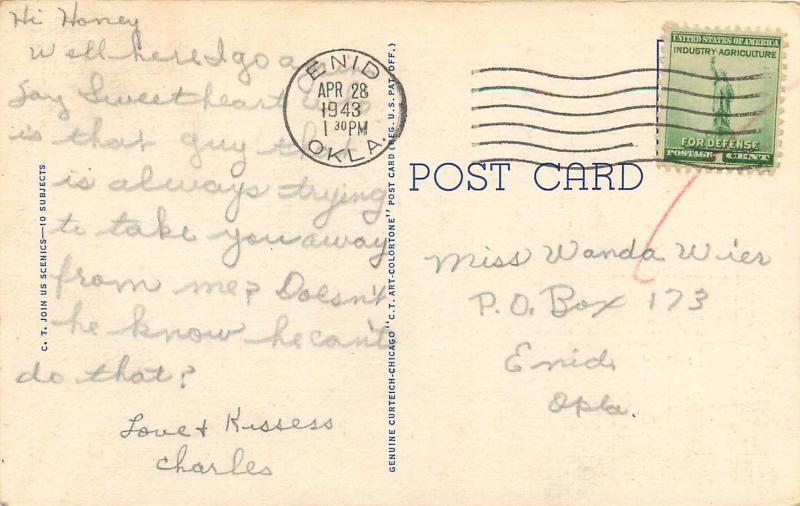 Hi Honey
Well here I go again
Say Sweetheart who
is that guy that
is always trying
to take you away
from me? Doesn't
he know he can't
do that?
Love + Kissess
Charles
C. T. JOIN US SCENICS—10 SUBJECTS
GENUINE CURTEICH-CHICAGO "C.T. ART-COLORTONE" POST CARD (REG. U.S. PAT. OFF.)
ENID
APR 28
1943
1 30 PM
OKLA.
UNITED STATES OF AMERICA
INDUSTRY·AGRICULTURE
FOR DEFENSE
POSTAGE 1 CENT
POST CARD
Miss Wanda Wier
P.O. Box 173
Enid,
Okla.